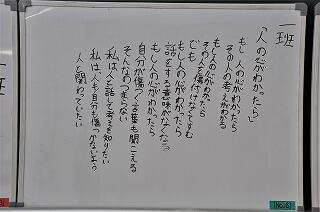 一班
「人の心がわかったら」
もし人の心がわかったら
その人の考えがわかる
もし人の心がわかったら
その人を傷付けなくてすむ
でも
もし人の心がわかったら
話をする意味がなくなる
もし人の心がわかったら
自分が傷つく言葉も聞こえる
そんなのつまらない
私は人と話して考えを知りたい
私は人も自分も傷つかないよう
人と関わっていたい
一班
No.8